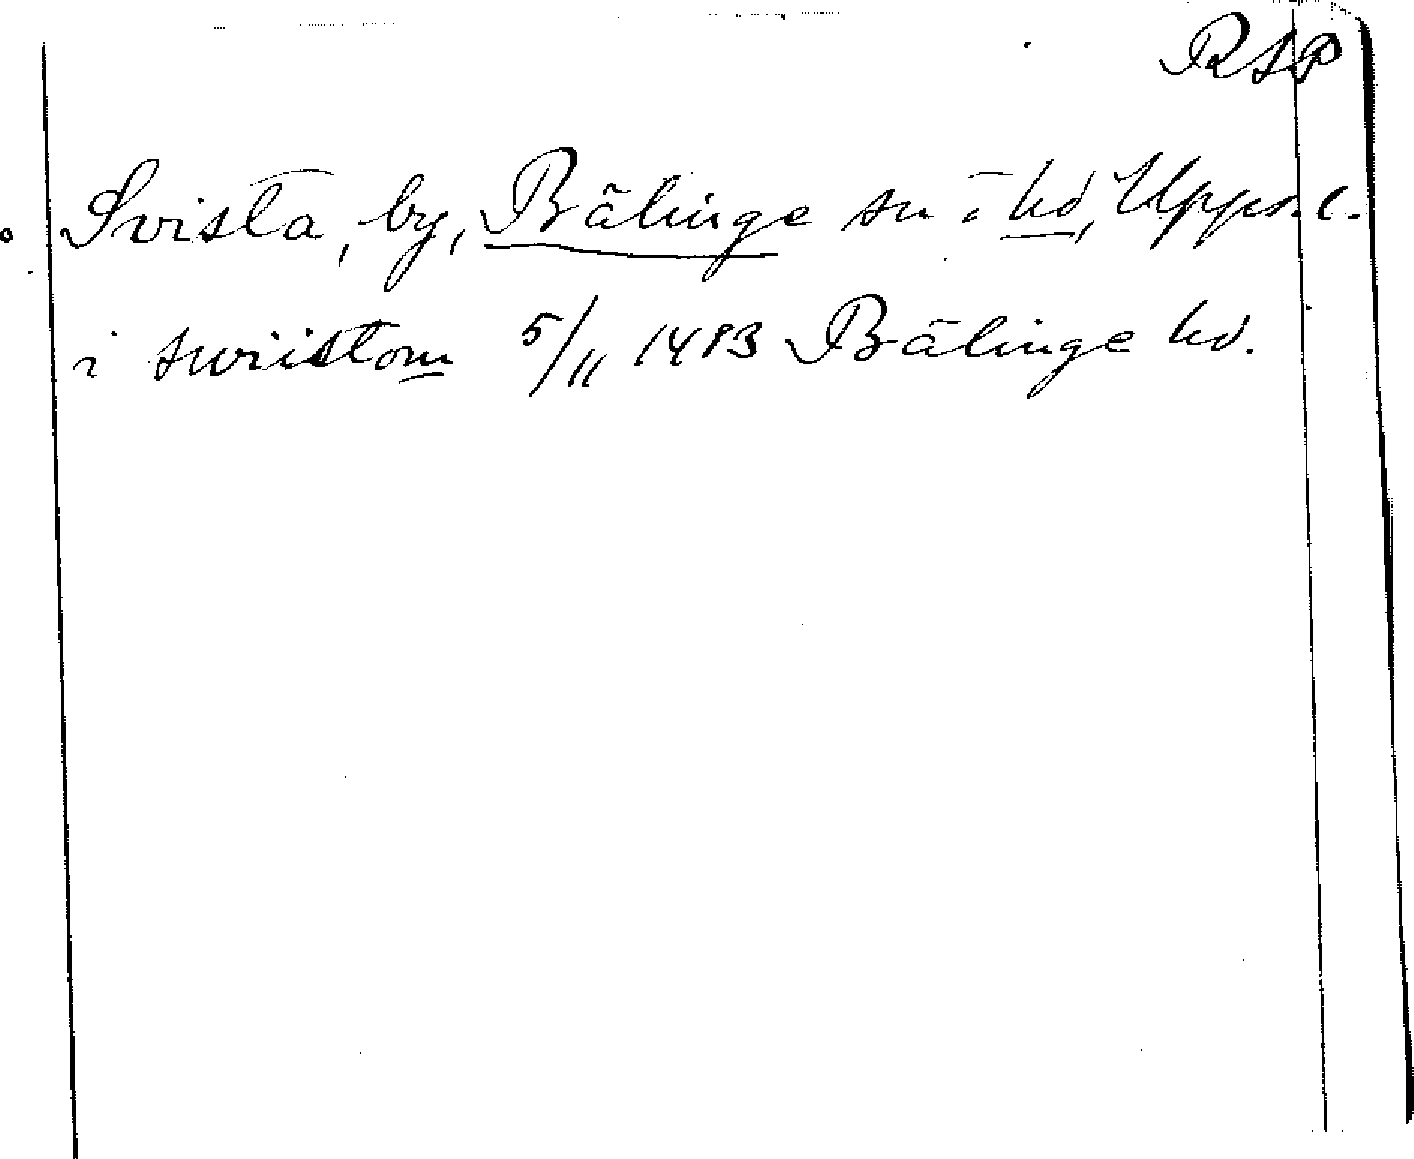 RAP
Svista, by, Bälinge sn o. hd, Upps. l.
i swiistom 5/11 1483 Bälinge hd.